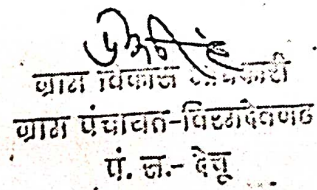 ग्राम विकास अधिकारी
ग्राम पंचायत-विरमदेवगढ
पं. स.- देचू